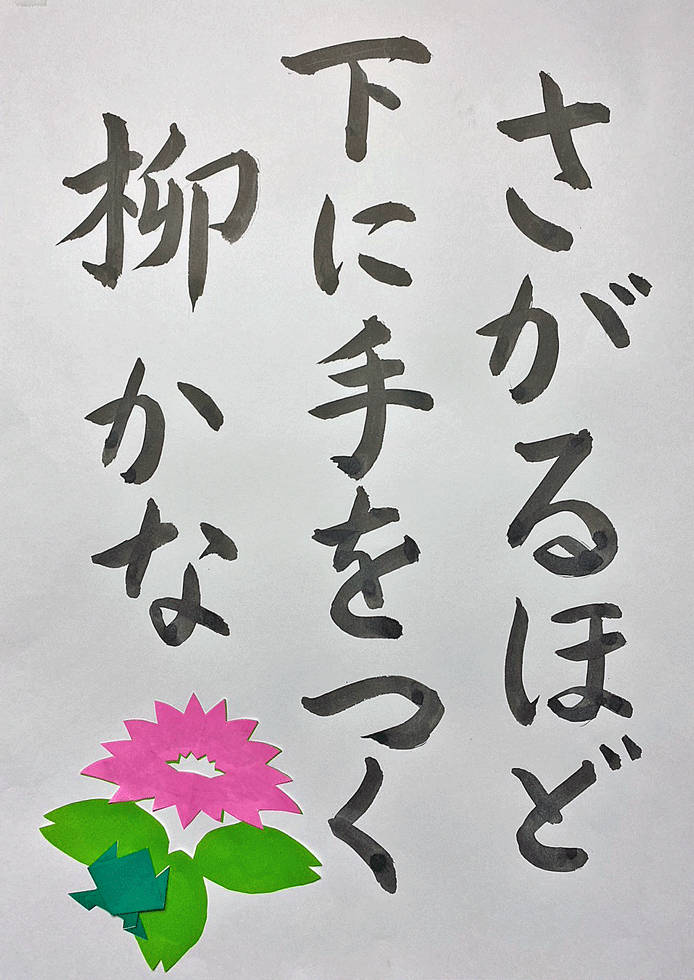 さがるほど
下に手をつく
柳かな